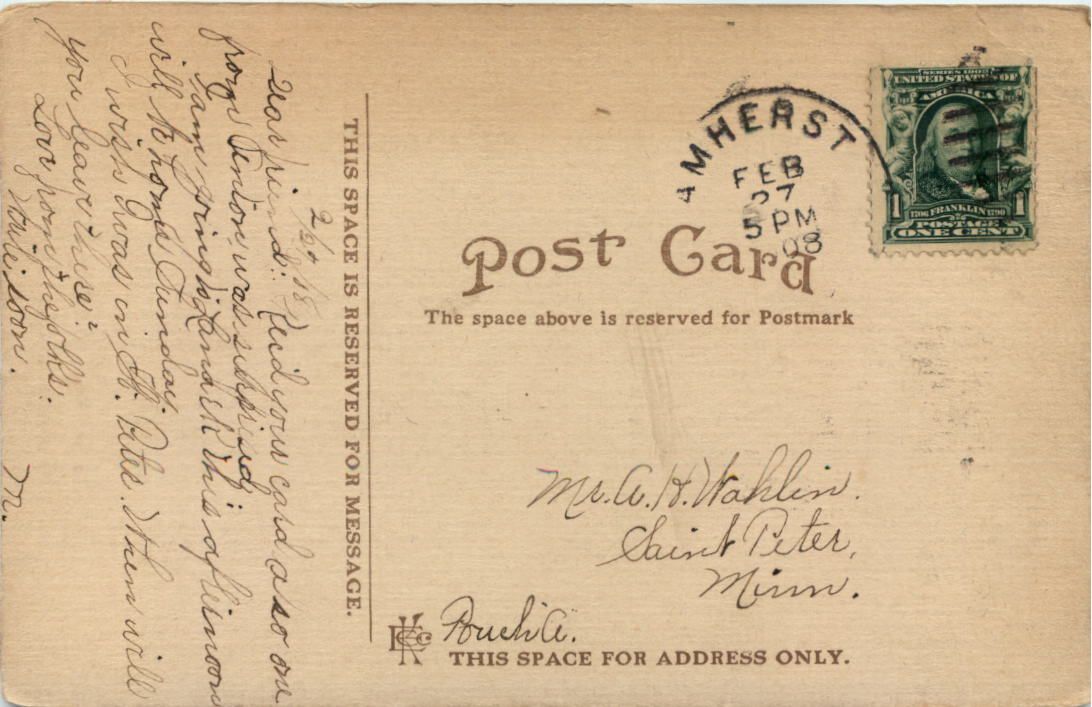 THIS SPACE IS RESERVED FOR MESSAGE.
Dear friend: Rec'd your card also one
from was surprised.
I am going to Lanark this afternoon
will be home Sunday.
I wish I was in St. Peter. When will
you leave there?
Love from the folks.
Write soon. M.
AMHERST
FEB
27
5 PM
08
SERIES 1902
UNITED STATES OF
AMERICA
1 1706 FRANKLIN 1790 1
POSTAGE
ONE CENT
Post Card
The space above is reserved for Postmark
Mr. A. H. Wahlin.
Saint Peter,
Minn.
THIS SPACE FOR ADDRESS ONLY.